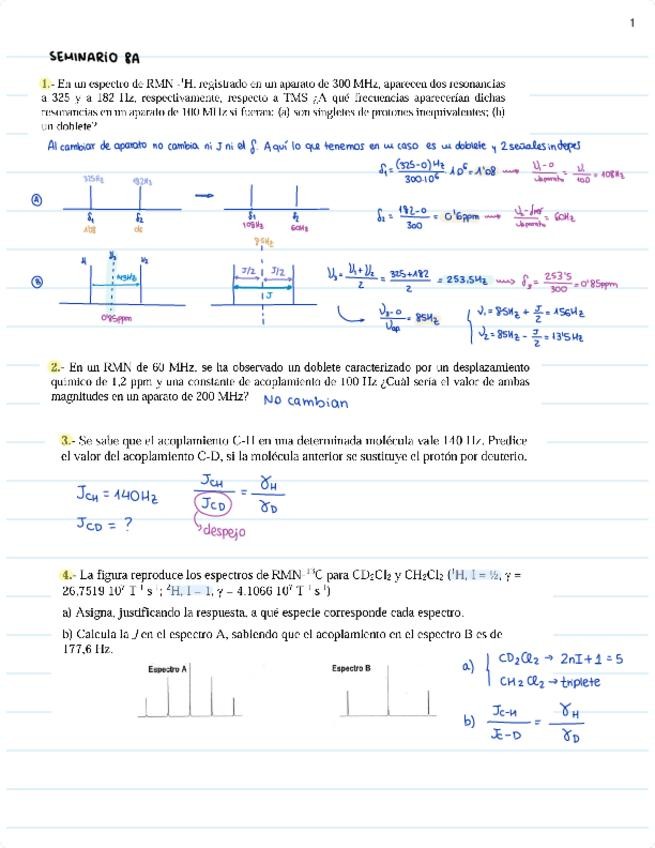 1
SEMINARIO 8A
1.- En un espectro de RMN -¹H, registrado en un aparato de 300 MHz, aparecen dos resonancias
a 325 y a 182 Hz, respectivamente, respecto a TMS ¿A qué frecuencias aparecerían dichas
resonancias en un aparato de 100 MHz si fueran: (a) son singletes de protones inequivalentes; (b)
un doblete?
Al cambiar de aparato no cambia ni J ni el δ. Aquí lo que tenemos en un caso es un doblete y 2 señales indeps
δ₁ = (325-0)Hz / 300·10⁶ · 10⁶ = 1'08 → ν₁-0 / νaparato = ν₁ / 100 = 108Hz
A 325Hz 182Hz → 
δ₁ δ₂ δ₁ δ₂
108Hz 60Hz
δ₂ = 182-0 / 300 = 0'6ppm → = 60Hz
85Hz
B ν₁ ν₃ ν₂ 143Hz J/2 J/2 J
0'85ppm
ν₃ = ν₁+ν₂ / 2 = 325+182 / 2 = 253,5Hz → δ₃ = 253'5 / 300 = 0'85ppm
ν₃-0 / νap = 85Hz
ν₁ = 85Hz + J/2 = 156Hz
ν₂ = 85Hz - J/2 = 13'5Hz
2.- En un RMN de 60 MHz, se ha observado un doblete caracterizado por un desplazamiento
químico de 1,2 ppm y una constante de acoplamiento de 100 Hz ¿Cuál sería el valor de ambas
magnitudes en un aparato de 200 MHz? No cambian
3.- Se sabe que el acoplamiento C-H en una determinada molécula vale 140 Hz. Predice
el valor del acoplamiento C-D, si la molécula anterior se sustituye el protón por deuterio.
J_CH = 140Hz
J_CD = ?
J_CH / J_CD = γ_H / γ_D
despejo
4.- La figura reproduce los espectros de RMN-¹³C para CD₂Cl₂ y CH₂Cl₂ (¹H, I = ½, γ =
26,7519 10⁷ T⁻¹ s⁻¹; ²H, I = 1, γ = 4.1066 10⁷ T⁻¹ s⁻¹)
a) Asigna, justificando la respuesta, a qué especie corresponde cada espectro.
b) Calcula la J en el espectro A, sabiendo que el acoplamiento en el espectro B es de
177,6 Hz.
Espectro A
Espectro B
a) CD₂Cl₂ → 2nI+1 = 5
CH₂Cl₂ → triplete
b) J_C-H / J_C-D = γ_H / γ_D